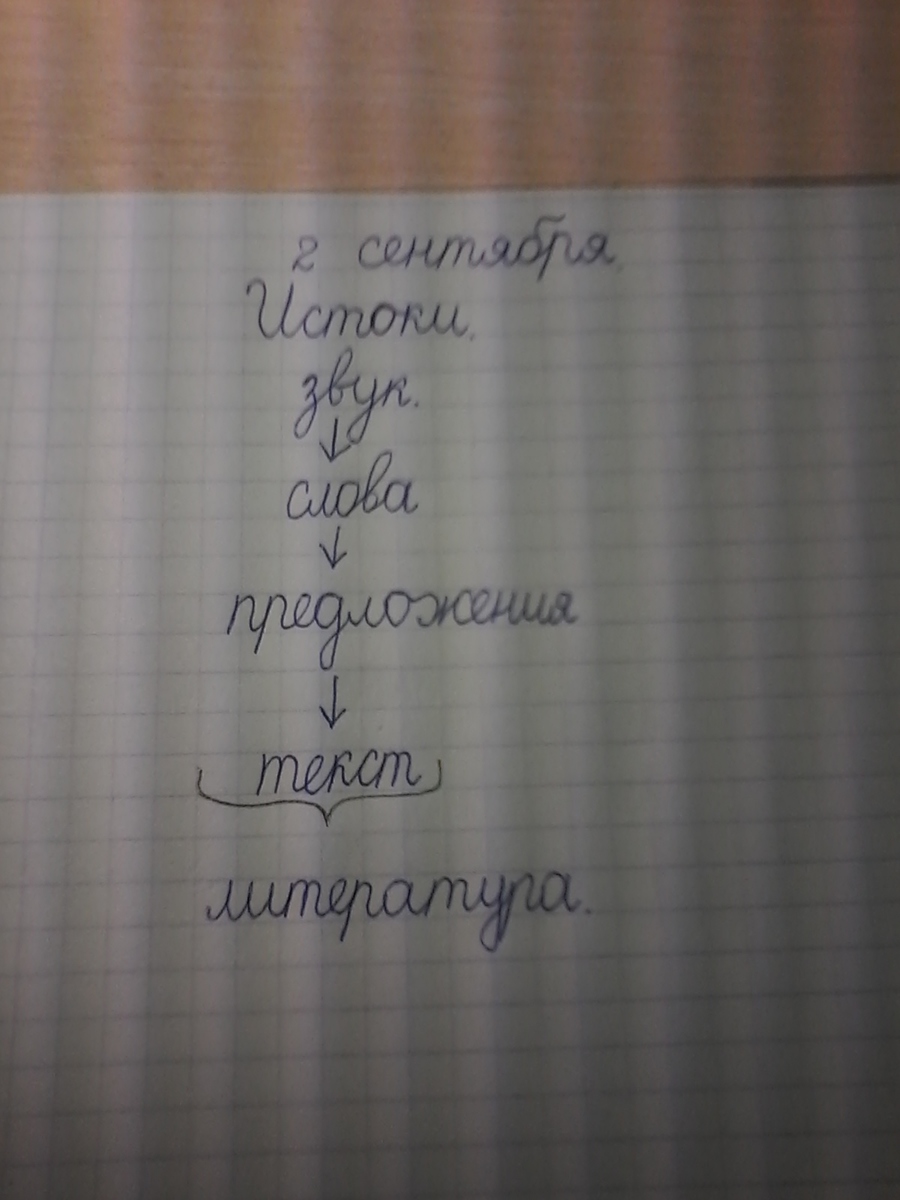 2 сентября.
Истоки.
звук.
слова
предложения
текст
литература.